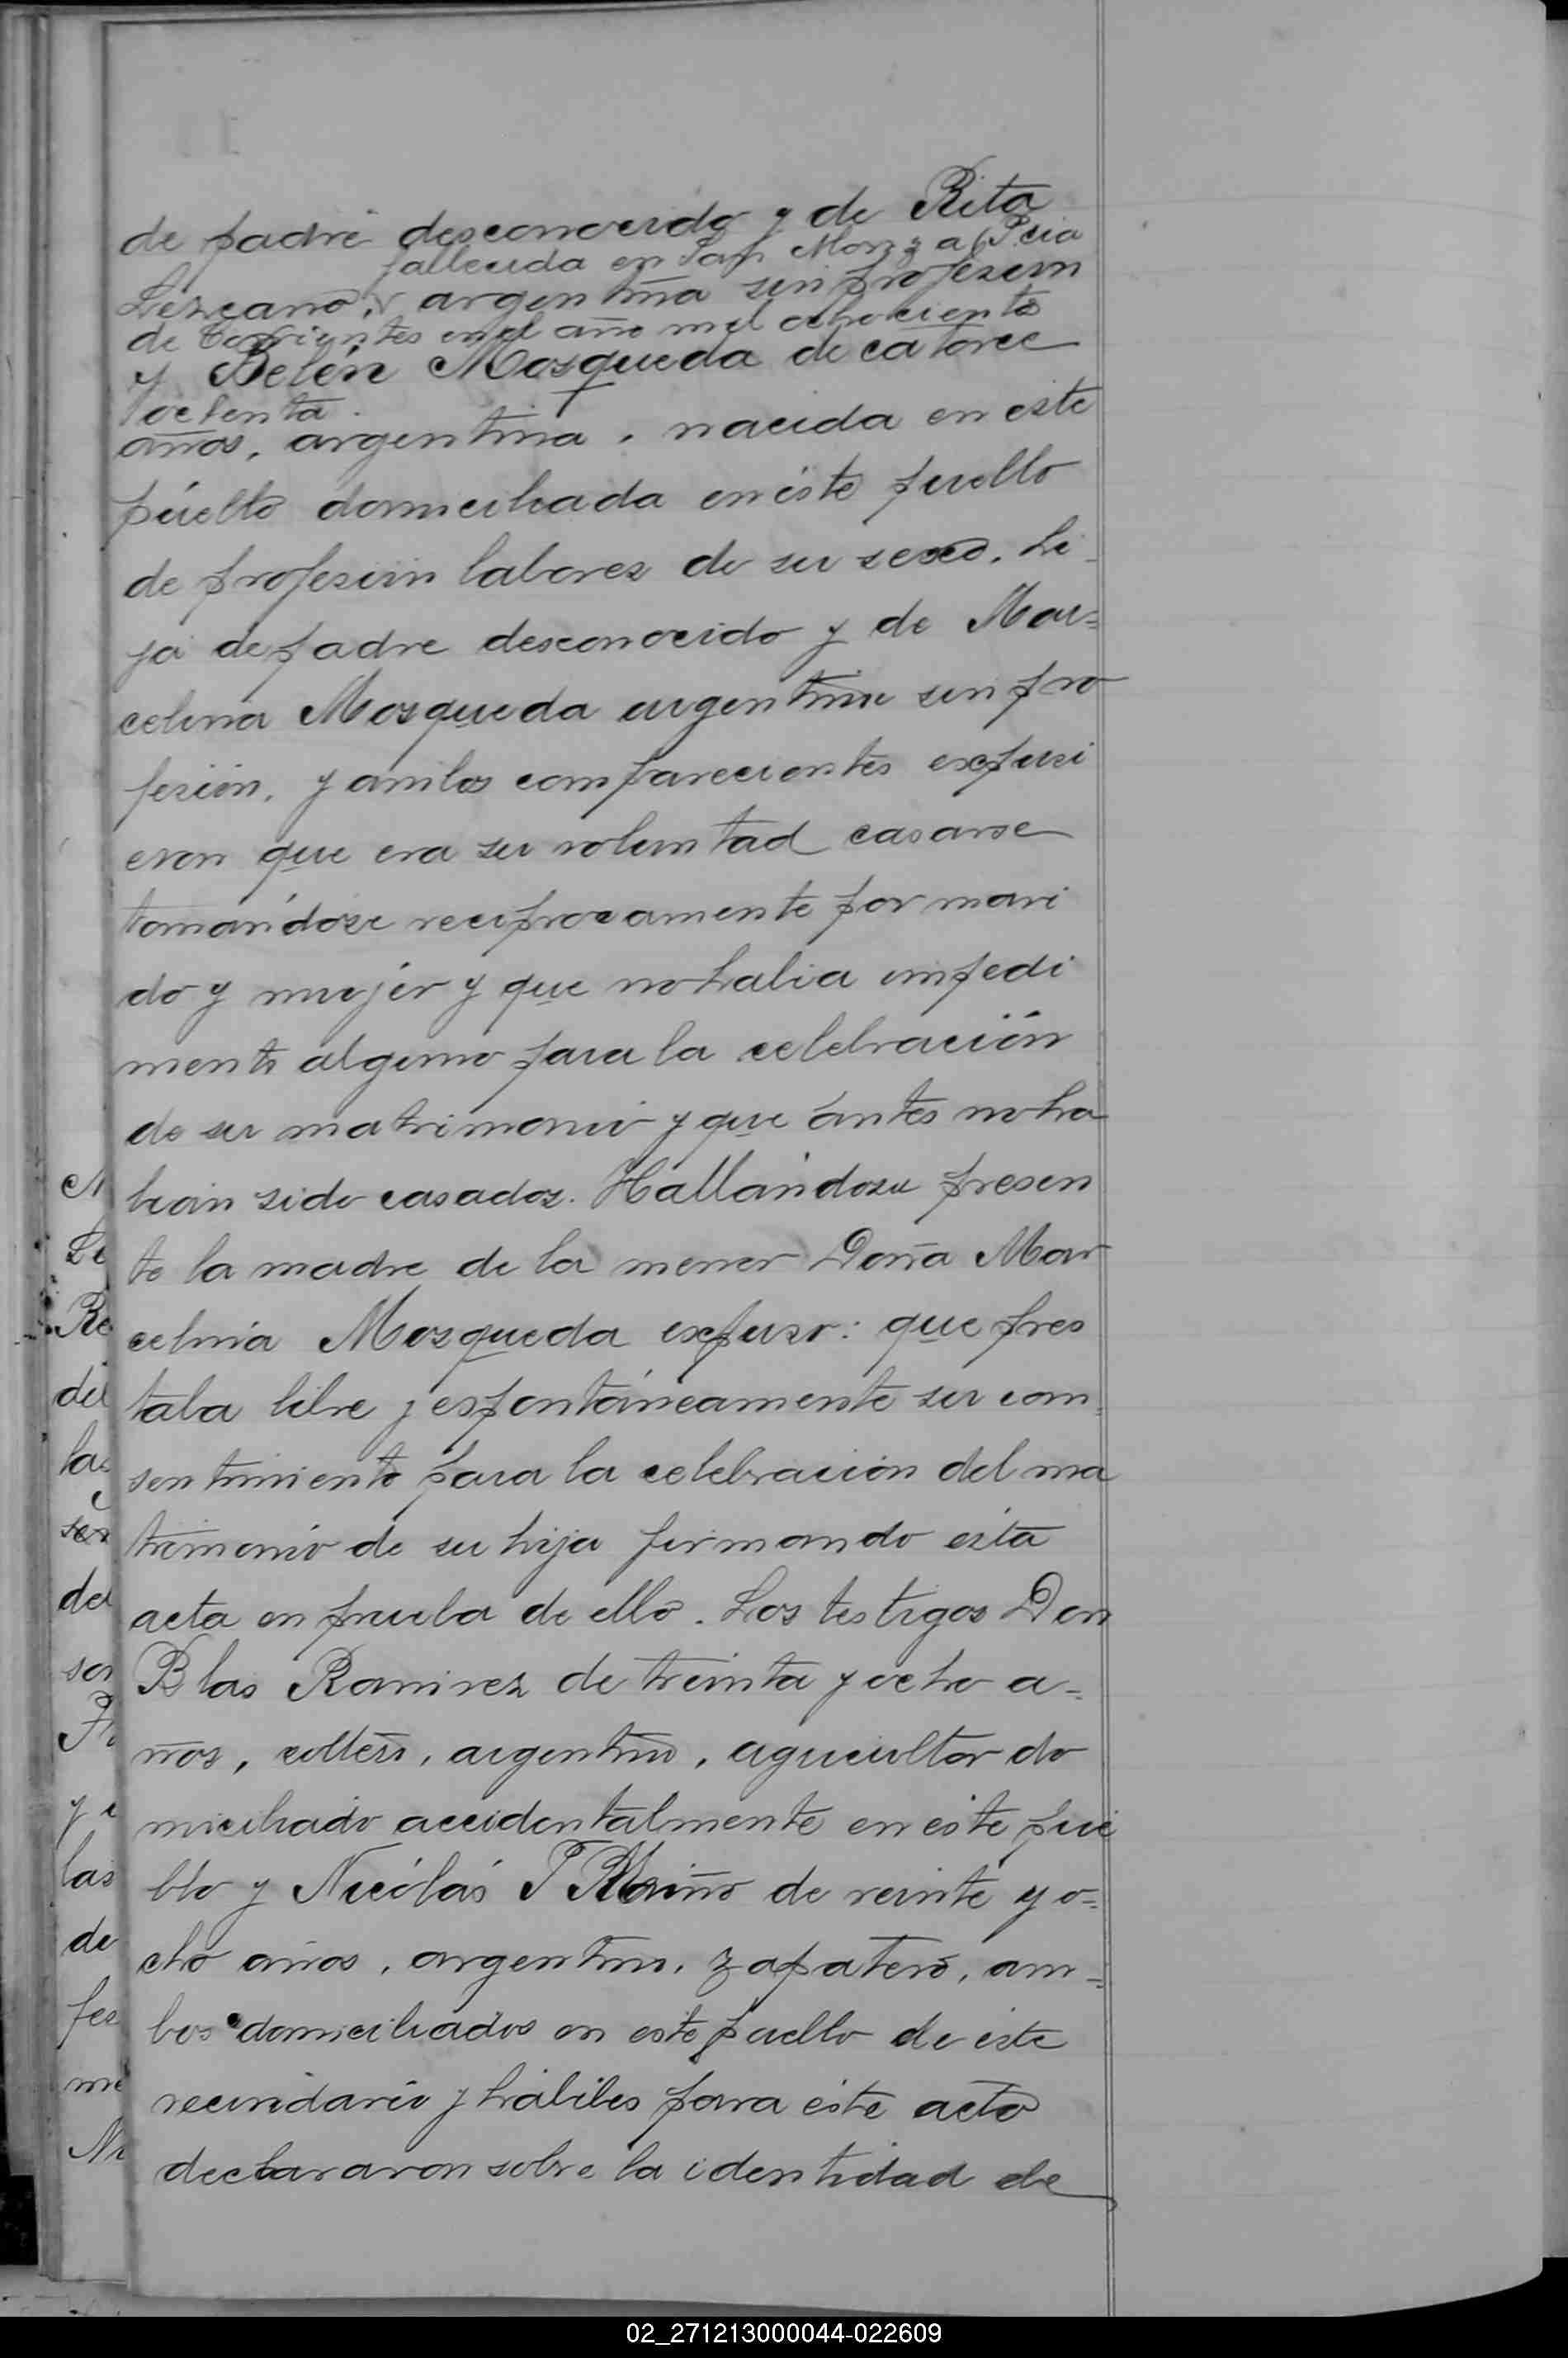 de padre desconocido y de Rita
fallecida en Pcia
Lezcano, argentina sin profesion
de Corrientes en el año mil ochocientos
y Belén Mosqueda de catorce
ochenta.
años, argentina, nacida en este
pueblo domiciliada en éste pueblo
de profesion labores de su sexo, hi-
ja de padre desconocido y de Mar=
celina Mosqueda argentina sin pro
fesión, y ambos comparecientes expusi
eron que era su voluntad casarse
tomándose reciprocamente por mari
do y mujér y que no habia impedi
mento alguno para la celebración
de su matrimonio y que ántes no ha
bian sido casados. Hallándose presen
te la madre de la menor Doña Mar
celina Mosqueda expuso: que pres
taba libre y espontáneamente su con=
sentimiento para la celebracion del ma
trimonio de su hija firmando esta
acta en prueba de ello. Los testigos Don
Blas Ramirez de treinta y ocho a=
ños, soltero, argentino, agricultor do
miciliado accidentalmente en este pue
blo y Nicólás T Miño de veinte y o=
cho años, argentino, zapatero, am=
bos domiciliados en este pueblo de este
vecindario y hábiles para éste acto
declararon sobre la identidad de
N
Le
Re
del
las
sex
del
son
y
las
de
fes
me
02_271213000044-022609